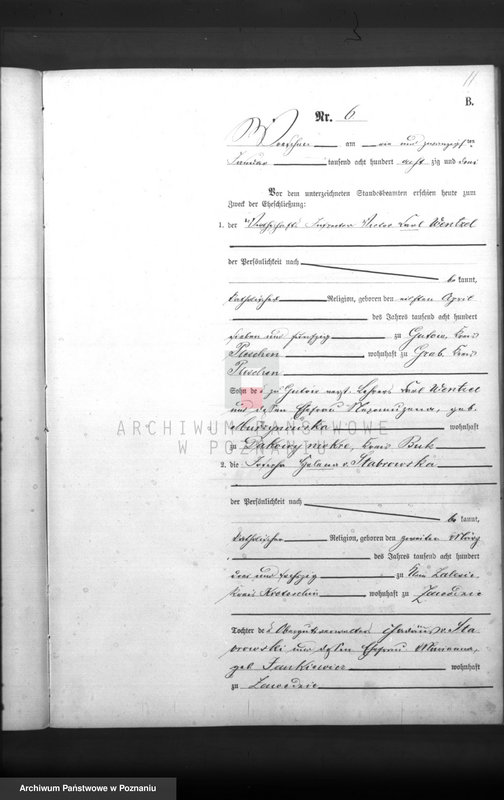 11
B.
Nr. 6
Wreschen am ein und zwanzigsten
Januar tausend acht hundert acht zig und drei
Vor dem unterzeichneten Standesbeamten erschien heute zum
Zweck der Eheschließung:
1. der Wirthschafts Inspector Victor Carl Wentzel
der Persönlichkeit nach
be kannt,
katholischer Religion, geboren den elften April
des Jahres tausend acht hundert
sieben und fünfzig zu Gutow, Kreis
Pleschen wohnhaft zu Grab, Kreis
Pleschen
Sohn des zu Gutow Lehrers Carl Wentzel
und dessen Ehefrau Nepomuzena, geb.
wohnhaft
zu Kreis Buk
2. die Josepha Helena v. Stabrowska
der Persönlichkeit nach
be kannt,
katholischer Religion, geboren den zweiten März
des Jahres tausend acht hundert
drei und sechzig zu Zalesie
Kreis Krotoschin wohnhaft zu Zawodzie
Tochter des v. Sta
browski und dessen Ehefrau Marianna,
geb. Jankiewicz wohnhaft
zu Zawodzie
ARCHIWUM PAŃSTWOWE
W POZNANIU
Archiwum Państwowe w Poznaniu